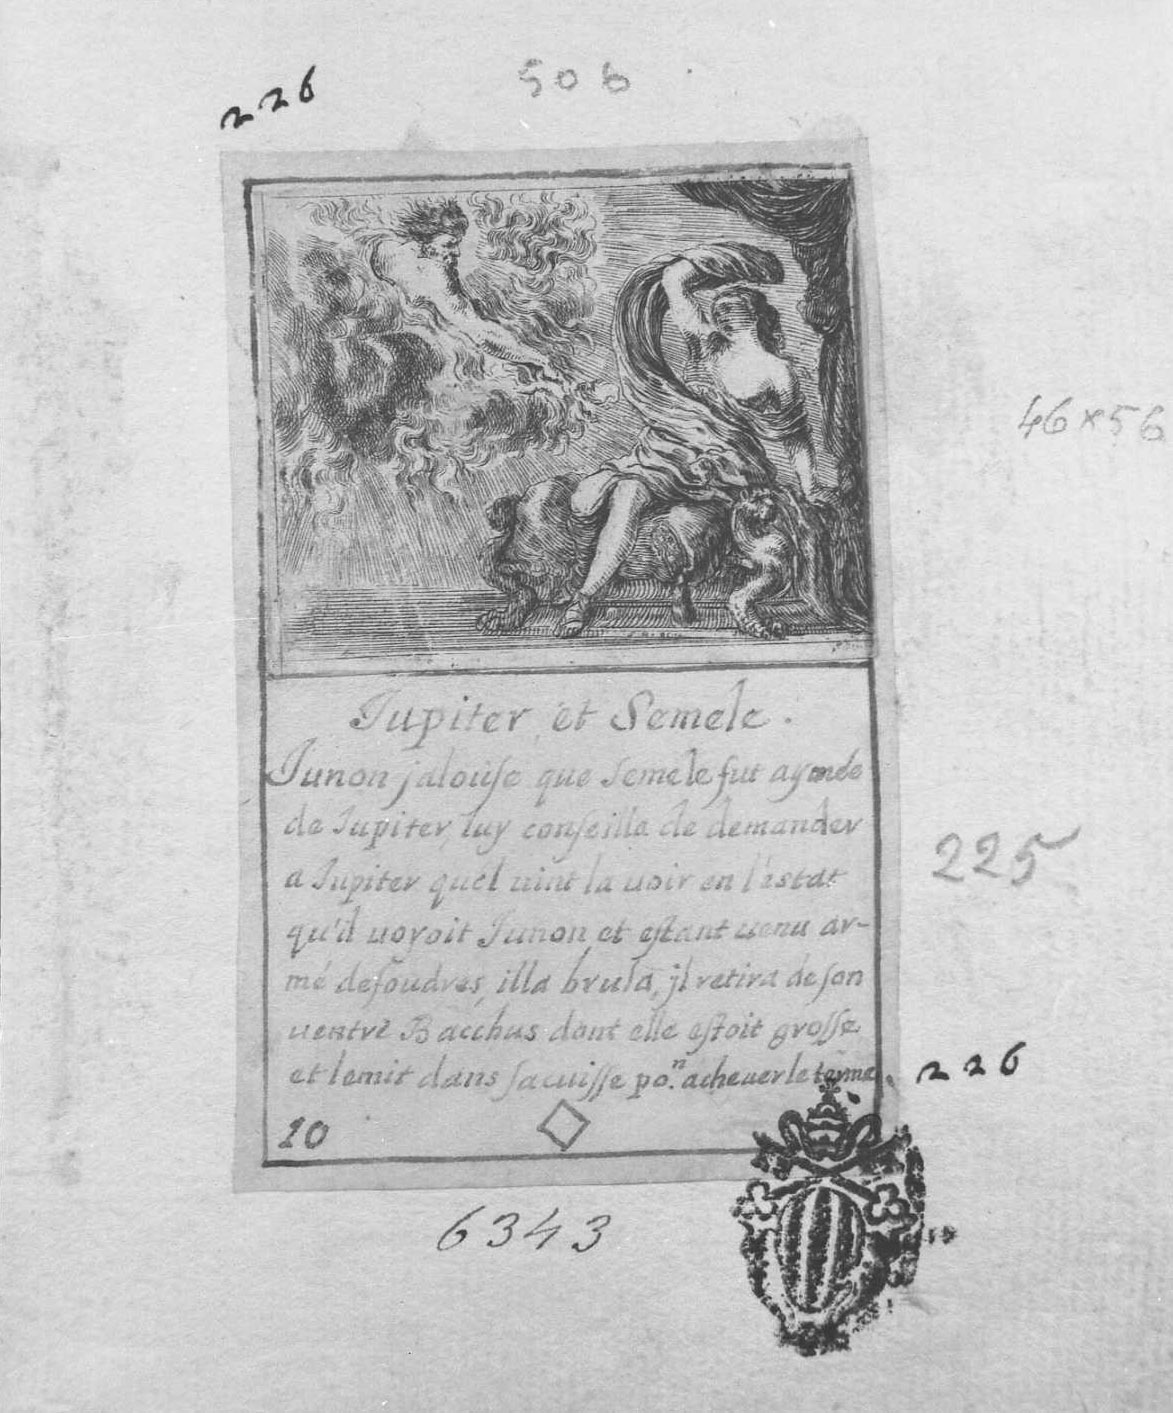 226
506
46x56
Jupiter et Semele.
Junon jalouse que Semele fut aymée
de Jupiter, luy conseilla de demander
a Jupiter quel uint la uoir en l'estat
qu'il uoyoit Junon, et estant uenu ar-
mé defoudres, illa brula, jl retira de son
uentre Bacchus dont elle estoit grosse
et lemit dans sacuisse po.ⁿ acheuer le terme.
225
226
10
6343